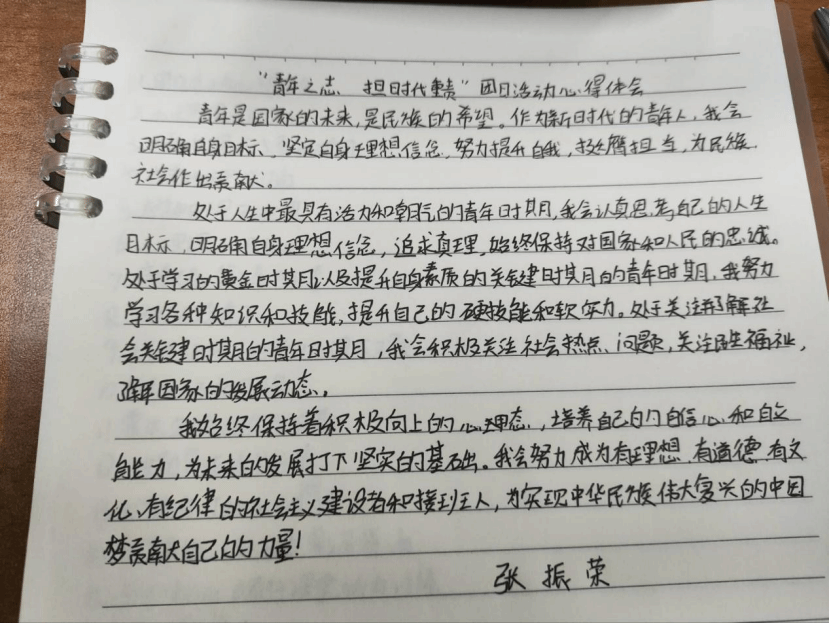 “青年之志 担时代重责”团日活动心得体会
青年是国家的未来,是民族的希望。作为新时代的青年人,我会
明确自身目标、坚定自身理想信念,努力提升自我,挺膺担当,为民族、
社会作出贡献。
处于人生中最具有活力和朝气的青年时期,我会认真思考自己的人生
目标,明确自身理想信念,追求真理,始终保持对国家和人民的忠诚。
处于学习的黄金时期以及提升自身素质的关键时期的青年时期,我努力
学习各种知识和技能,提升自己的硬技能和软实力。处于关注并了解社
会关键时期的青年时期,我会积极关注社会热点、问题,关注民生福祉,
了解国家的发展动态。
我始终保持着积极向上的心理态,培养自己的自信心和自立
能力,为未来的发展打下坚实的基础。我会努力成为有理想、有道德、有文
化、有纪律的社会主义建设者和接班人,为实现中华民族伟大复兴的中国
梦贡献自己的力量!
张振荣